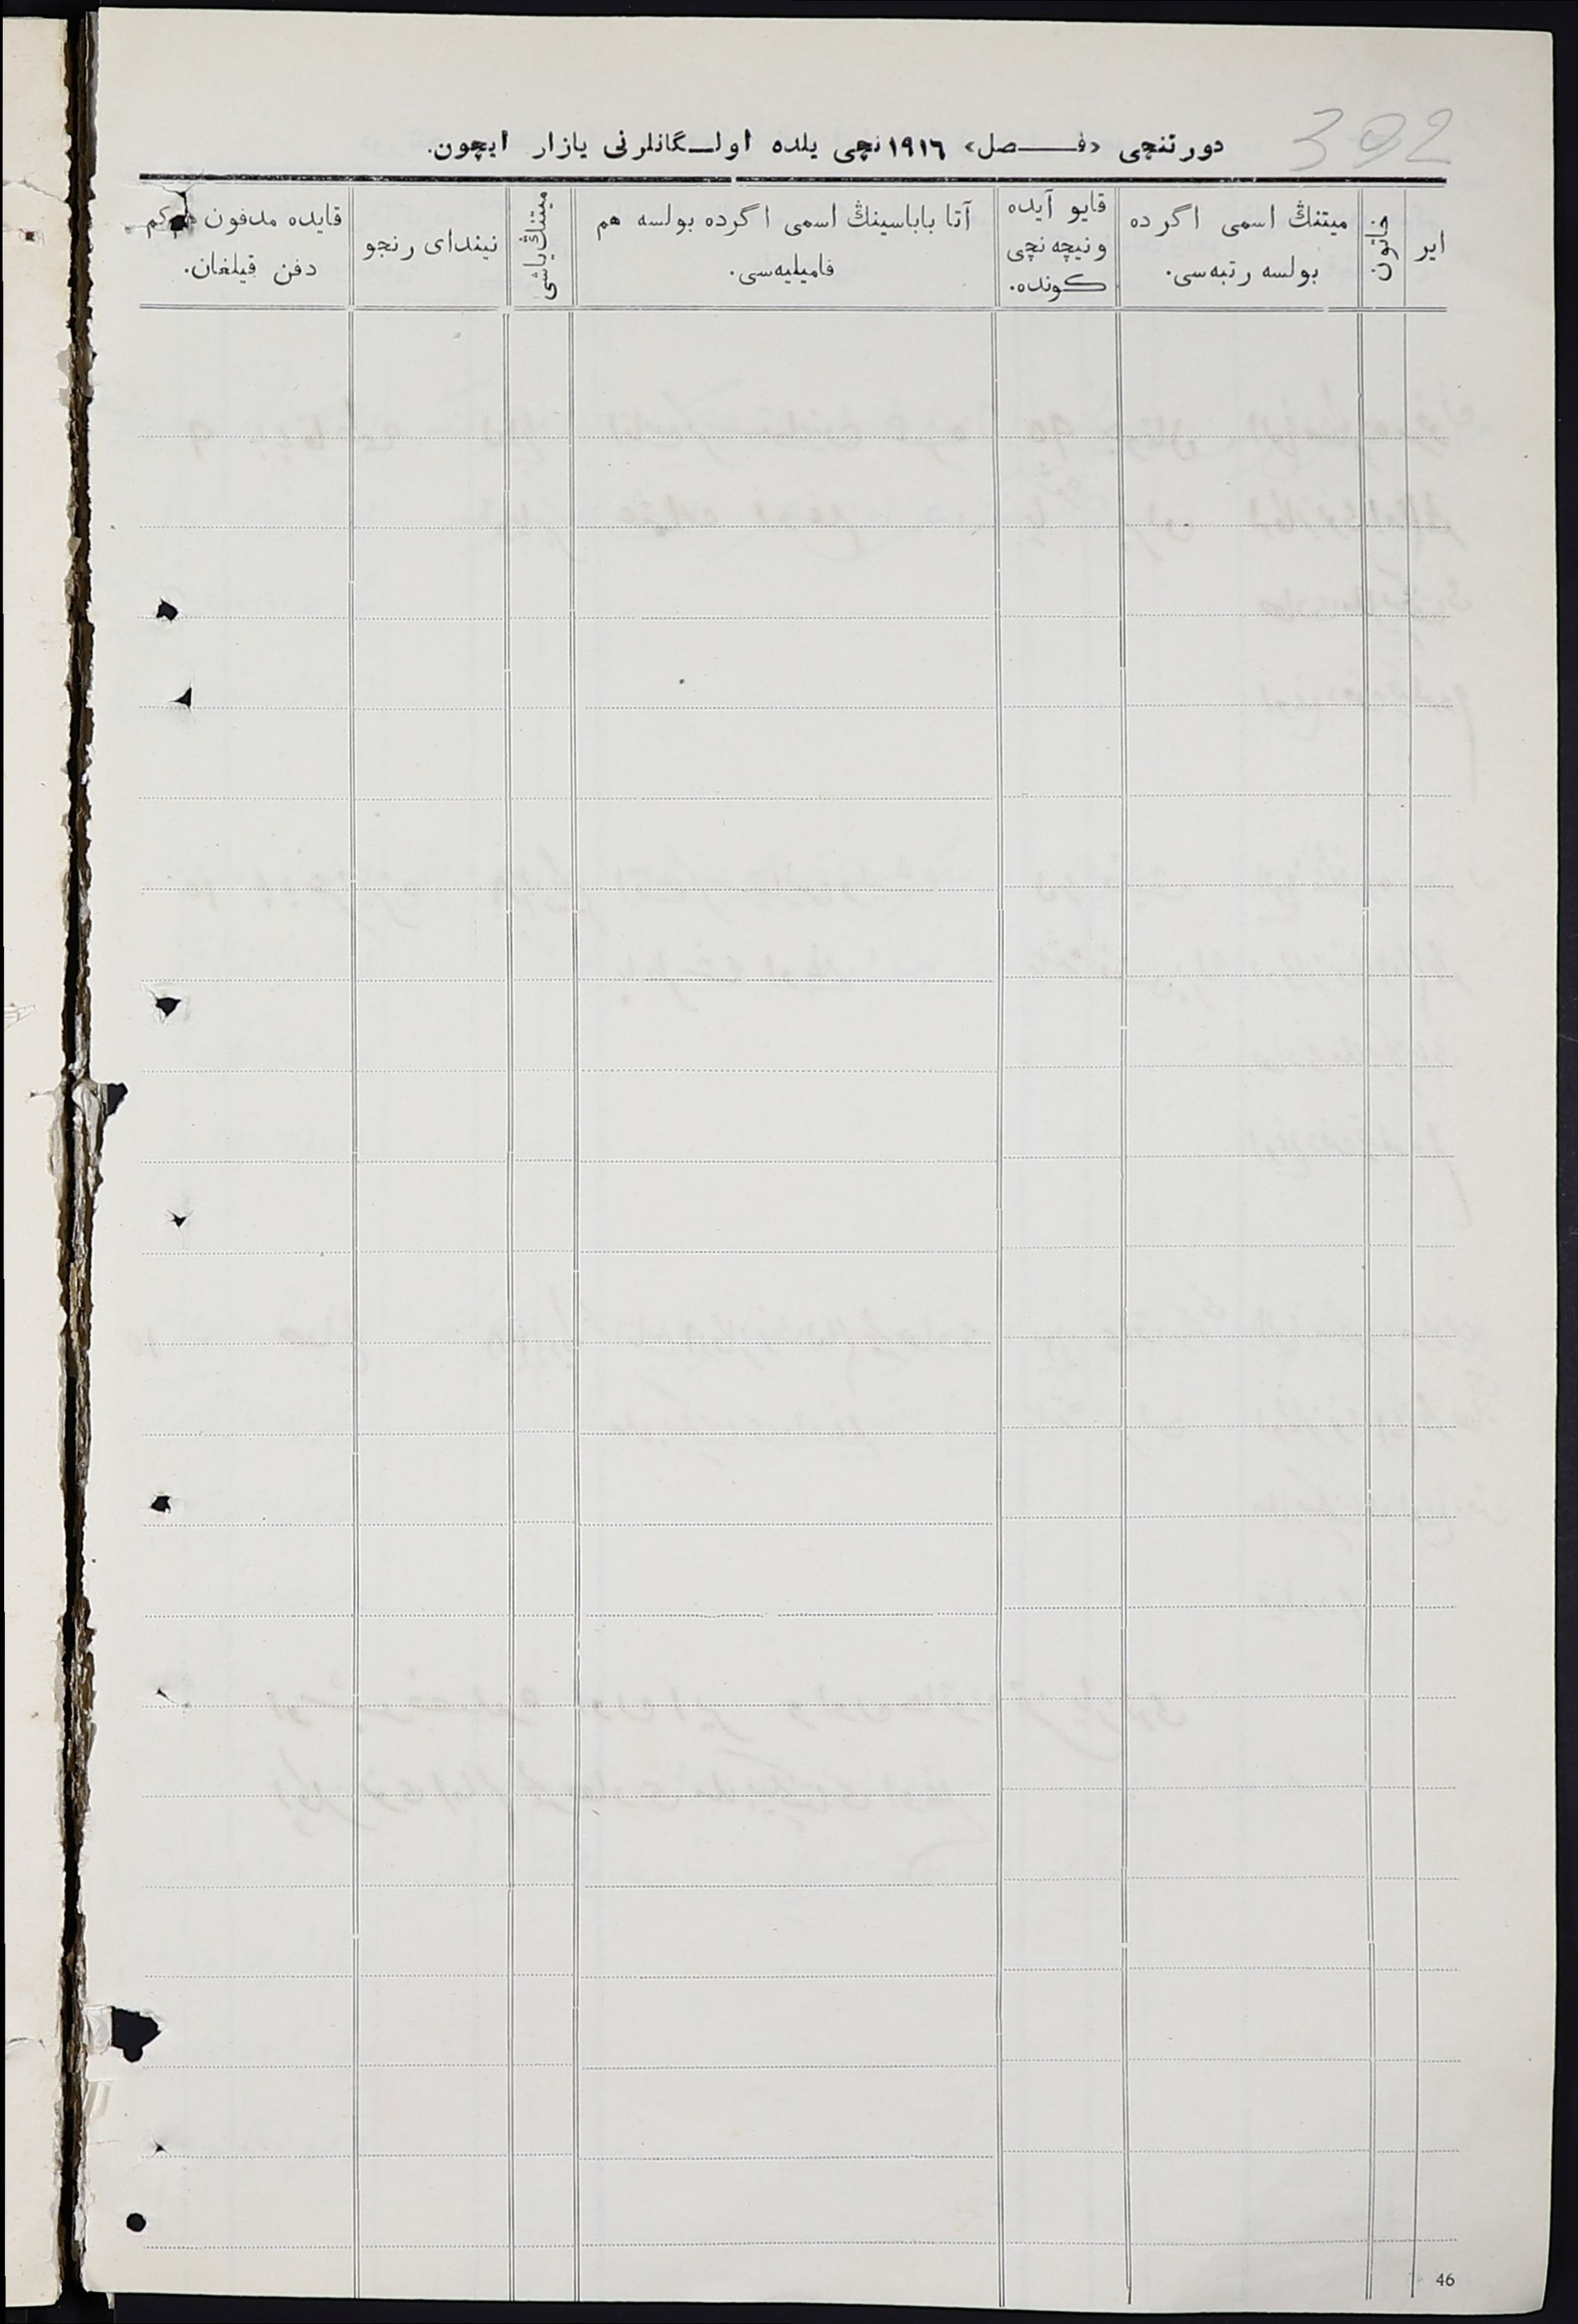 392
دورتنچی «فصل» ١٩١٦نچی یلده اولگانلرنی یازار ایچون.
ایر
خاتون
میتنڭ اسمی اگرده
بولسه رتبه‌سی.
قایو آیده
ونیچه‌نچی
کونده.
آتا باباسینڭ اسمی اگرده بولسه هم
فامیلیه‌سی.
میتنڭ یاشی
نیندای رنجو
قایده مدفون هم کم
دفن قیلغان.
46